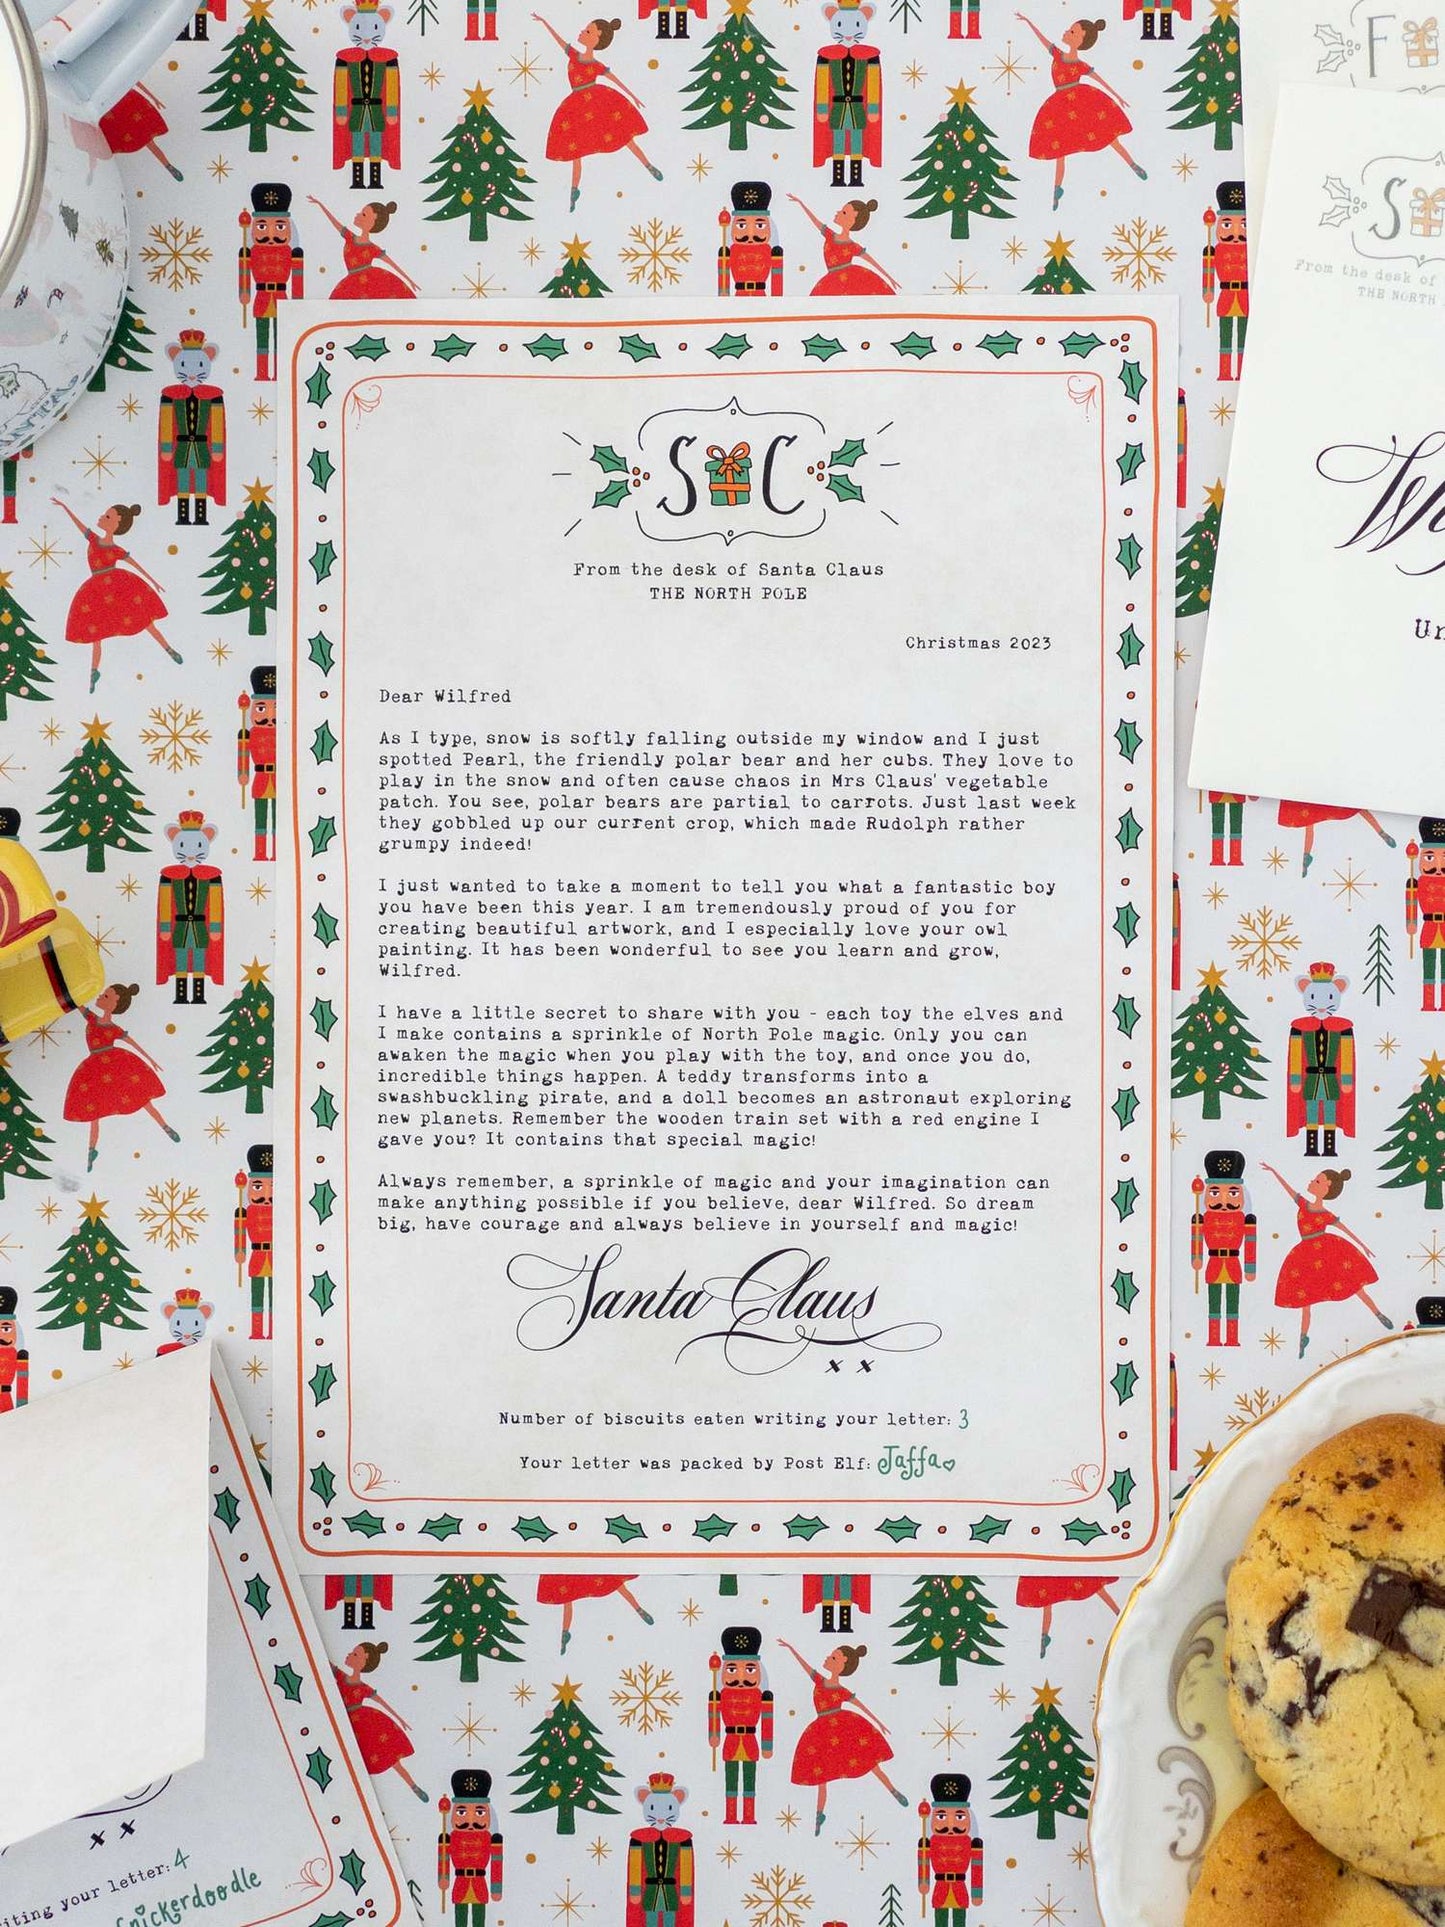 S C
From the desk of Santa Claus
THE NORTH POLE
Christmas 2023
Dear Wilfred
As I type, snow is softly falling outside my window and I just
spotted Pearl, the friendly polar bear and her cubs. They love to
play in the snow and often cause chaos in Mrs Claus' vegetable
patch. You see, polar bears are partial to carrots. Just last week
they gobbled up our current crop, which made Rudolph rather
grumpy indeed!
I just wanted to take a moment to tell you what a fantastic boy
you have been this year. I am tremendously proud of you for
creating beautiful artwork, and I especially love your owl
painting. It has been wonderful to see you learn and grow,
Wilfred.
I have a little secret to share with you - each toy the elves and
I make contains a sprinkle of North Pole magic. Only you can
awaken the magic when you play with the toy, and once you do,
incredible things happen. A teddy transforms into a
swashbuckling pirate, and a doll becomes an astronaut exploring
new planets. Remember the wooden train set with a red engine I
gave you? It contains that special magic!
Always remember, a sprinkle of magic and your imagination can
make anything possible if you believe, dear Wilfred. So dream
big, have courage and always believe in yourself and magic!
Santa Claus
x x
Number of biscuits eaten writing your letter: 3
Your letter was packed by Post Elf: Jaffa
F
S
From the desk of
THE NORTH
x x
iting your letter: 4
nickerdoodle